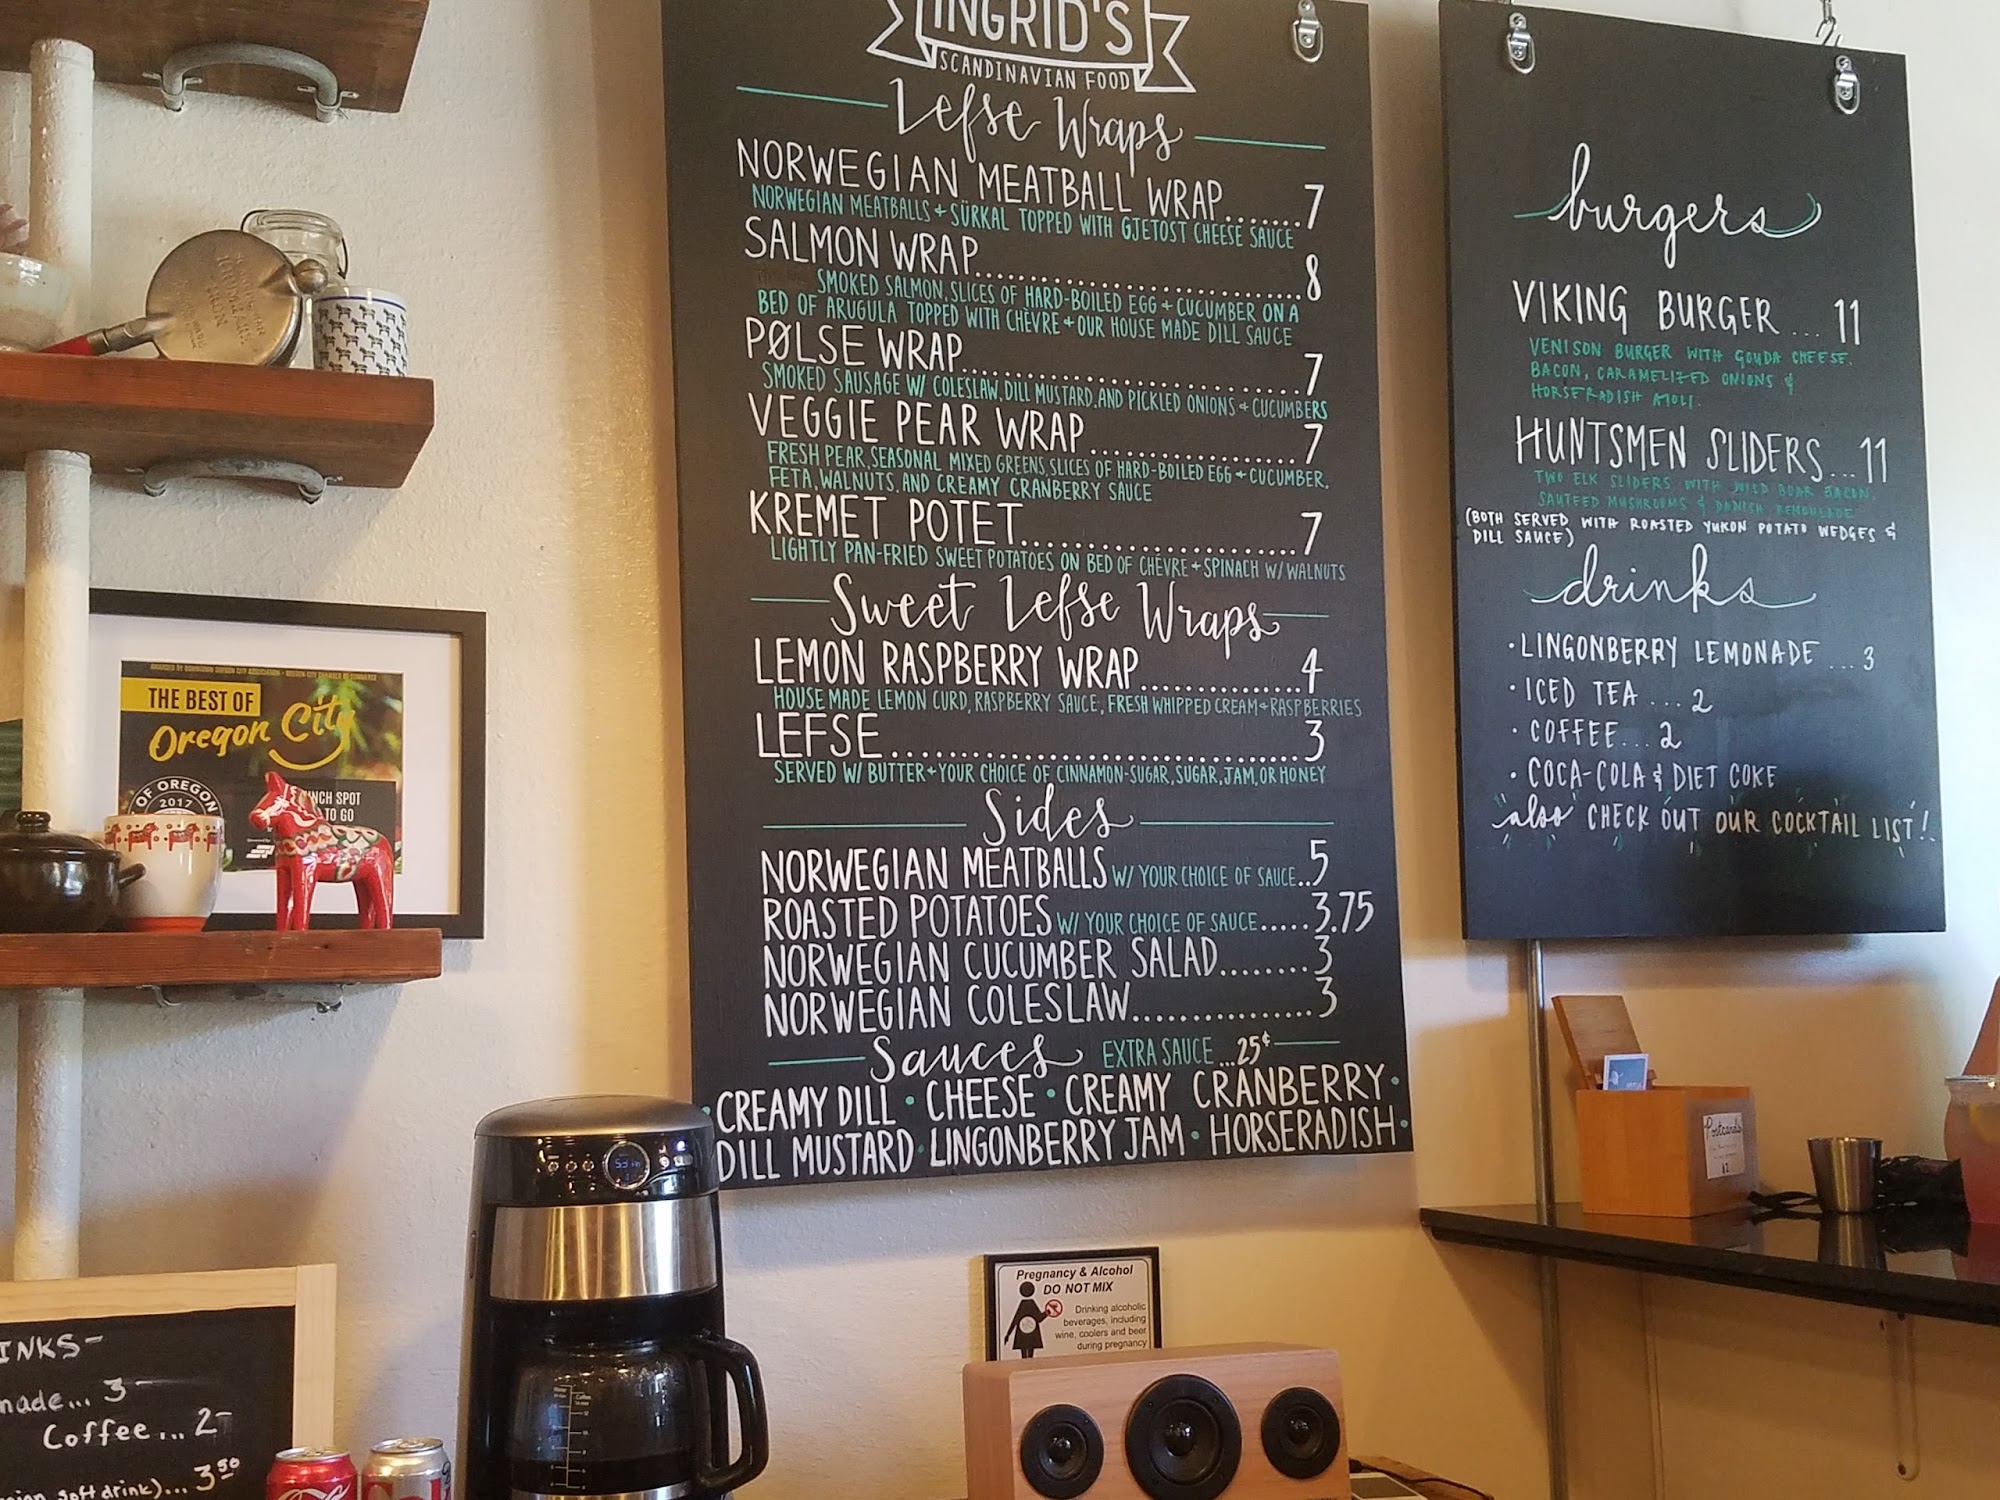 INGRID'S
SCANDINAVIAN FOOD
Lefse Wraps
NORWEGIAN MEATBALL WRAP.......7
NORWEGIAN MEATBALLS + SÜRKAL TOPPED WITH GJETOST CHEESE SAUCE
SALMON WRAP..............................8
SMOKED SALMON, SLICES OF HARD-BOILED EGG + CUCUMBER ON A
BED OF ARUGULA TOPPED WITH CHÈVRE + OUR HOUSE MADE DILL SAUCE
PØLSE WRAP..............................7
SMOKED SAUSAGE W/ COLESLAW, DILL MUSTARD, AND PICKLED ONIONS + CUCUMBERS
VEGGIE PEAR WRAP...................7
FRESH PEAR, SEASONAL MIXED GREENS, SLICES OF HARD-BOILED EGG + CUCUMBER,
FETA, WALNUTS, AND CREAMY CRANBERRY SAUCE
KREMET POTET.........................7
LIGHTLY PAN-FRIED SWEET POTATOES ON BED OF CHEVRE + SPINACH W/ WALNUTS
Sweet Lefse Wraps
LEMON RASPBERRY WRAP...............4
HOUSE MADE LEMON CURD, RASPBERRY SAUCE, FRESH WHIPPED CREAM + RASPBERRIES
LEFSE.......................................3
SERVED W/ BUTTER + YOUR CHOICE OF CINNAMON-SUGAR, SUGAR, JAM, OR HONEY
Sides
NORWEGIAN MEATBALLS W/ YOUR CHOICE OF SAUCE..5
ROASTED POTATOES W/ YOUR CHOICE OF SAUCE.....3.75
NORWEGIAN CUCUMBER SALAD........3
NORWEGIAN COLESLAW................3
Sauces EXTRA SAUCE...25¢
• CREAMY DILL • CHEESE • CREAMY CRANBERRY •
DILL MUSTARD • LINGONBERRY JAM • HORSERADISH •
burgers
VIKING BURGER ... 11
VENISON BURGER WITH GOUDA CHEESE,
BACON, CARAMELIZED ONIONS &
HORSERADISH AIOLI.
HUNTSMEN SLIDERS... 11
TWO ELK SLIDERS WITH WILD BOAR BACON,
SAUTEED MUSHROOMS & DANISH REMOULADE
(BOTH SERVED WITH ROASTED YUKON POTATO WEDGES &
DILL SAUCE)
drinks
• LINGONBERRY LEMONADE ... 3
• ICED TEA ... 2
• COFFEE... 2
• COCA-COLA & DIET COKE
also CHECK OUT OUR COCKTAIL LIST!
AWARDED BY DOWNTOWN OREGON CITY ASSOCIATION + OREGON CITY CHAMBER OF COMMERCE
THE BEST OF
Oregon City
OF OREGON
2017
NCH SPOT
TO GO
Postcards
Pregnancy & Alcohol
DO NOT MIX
Drinking alcoholic
beverages, including
wine, coolers and beer
during pregnancy
INKS-
nade... 3-
Coffee... 2-
soft drink)... 3.50